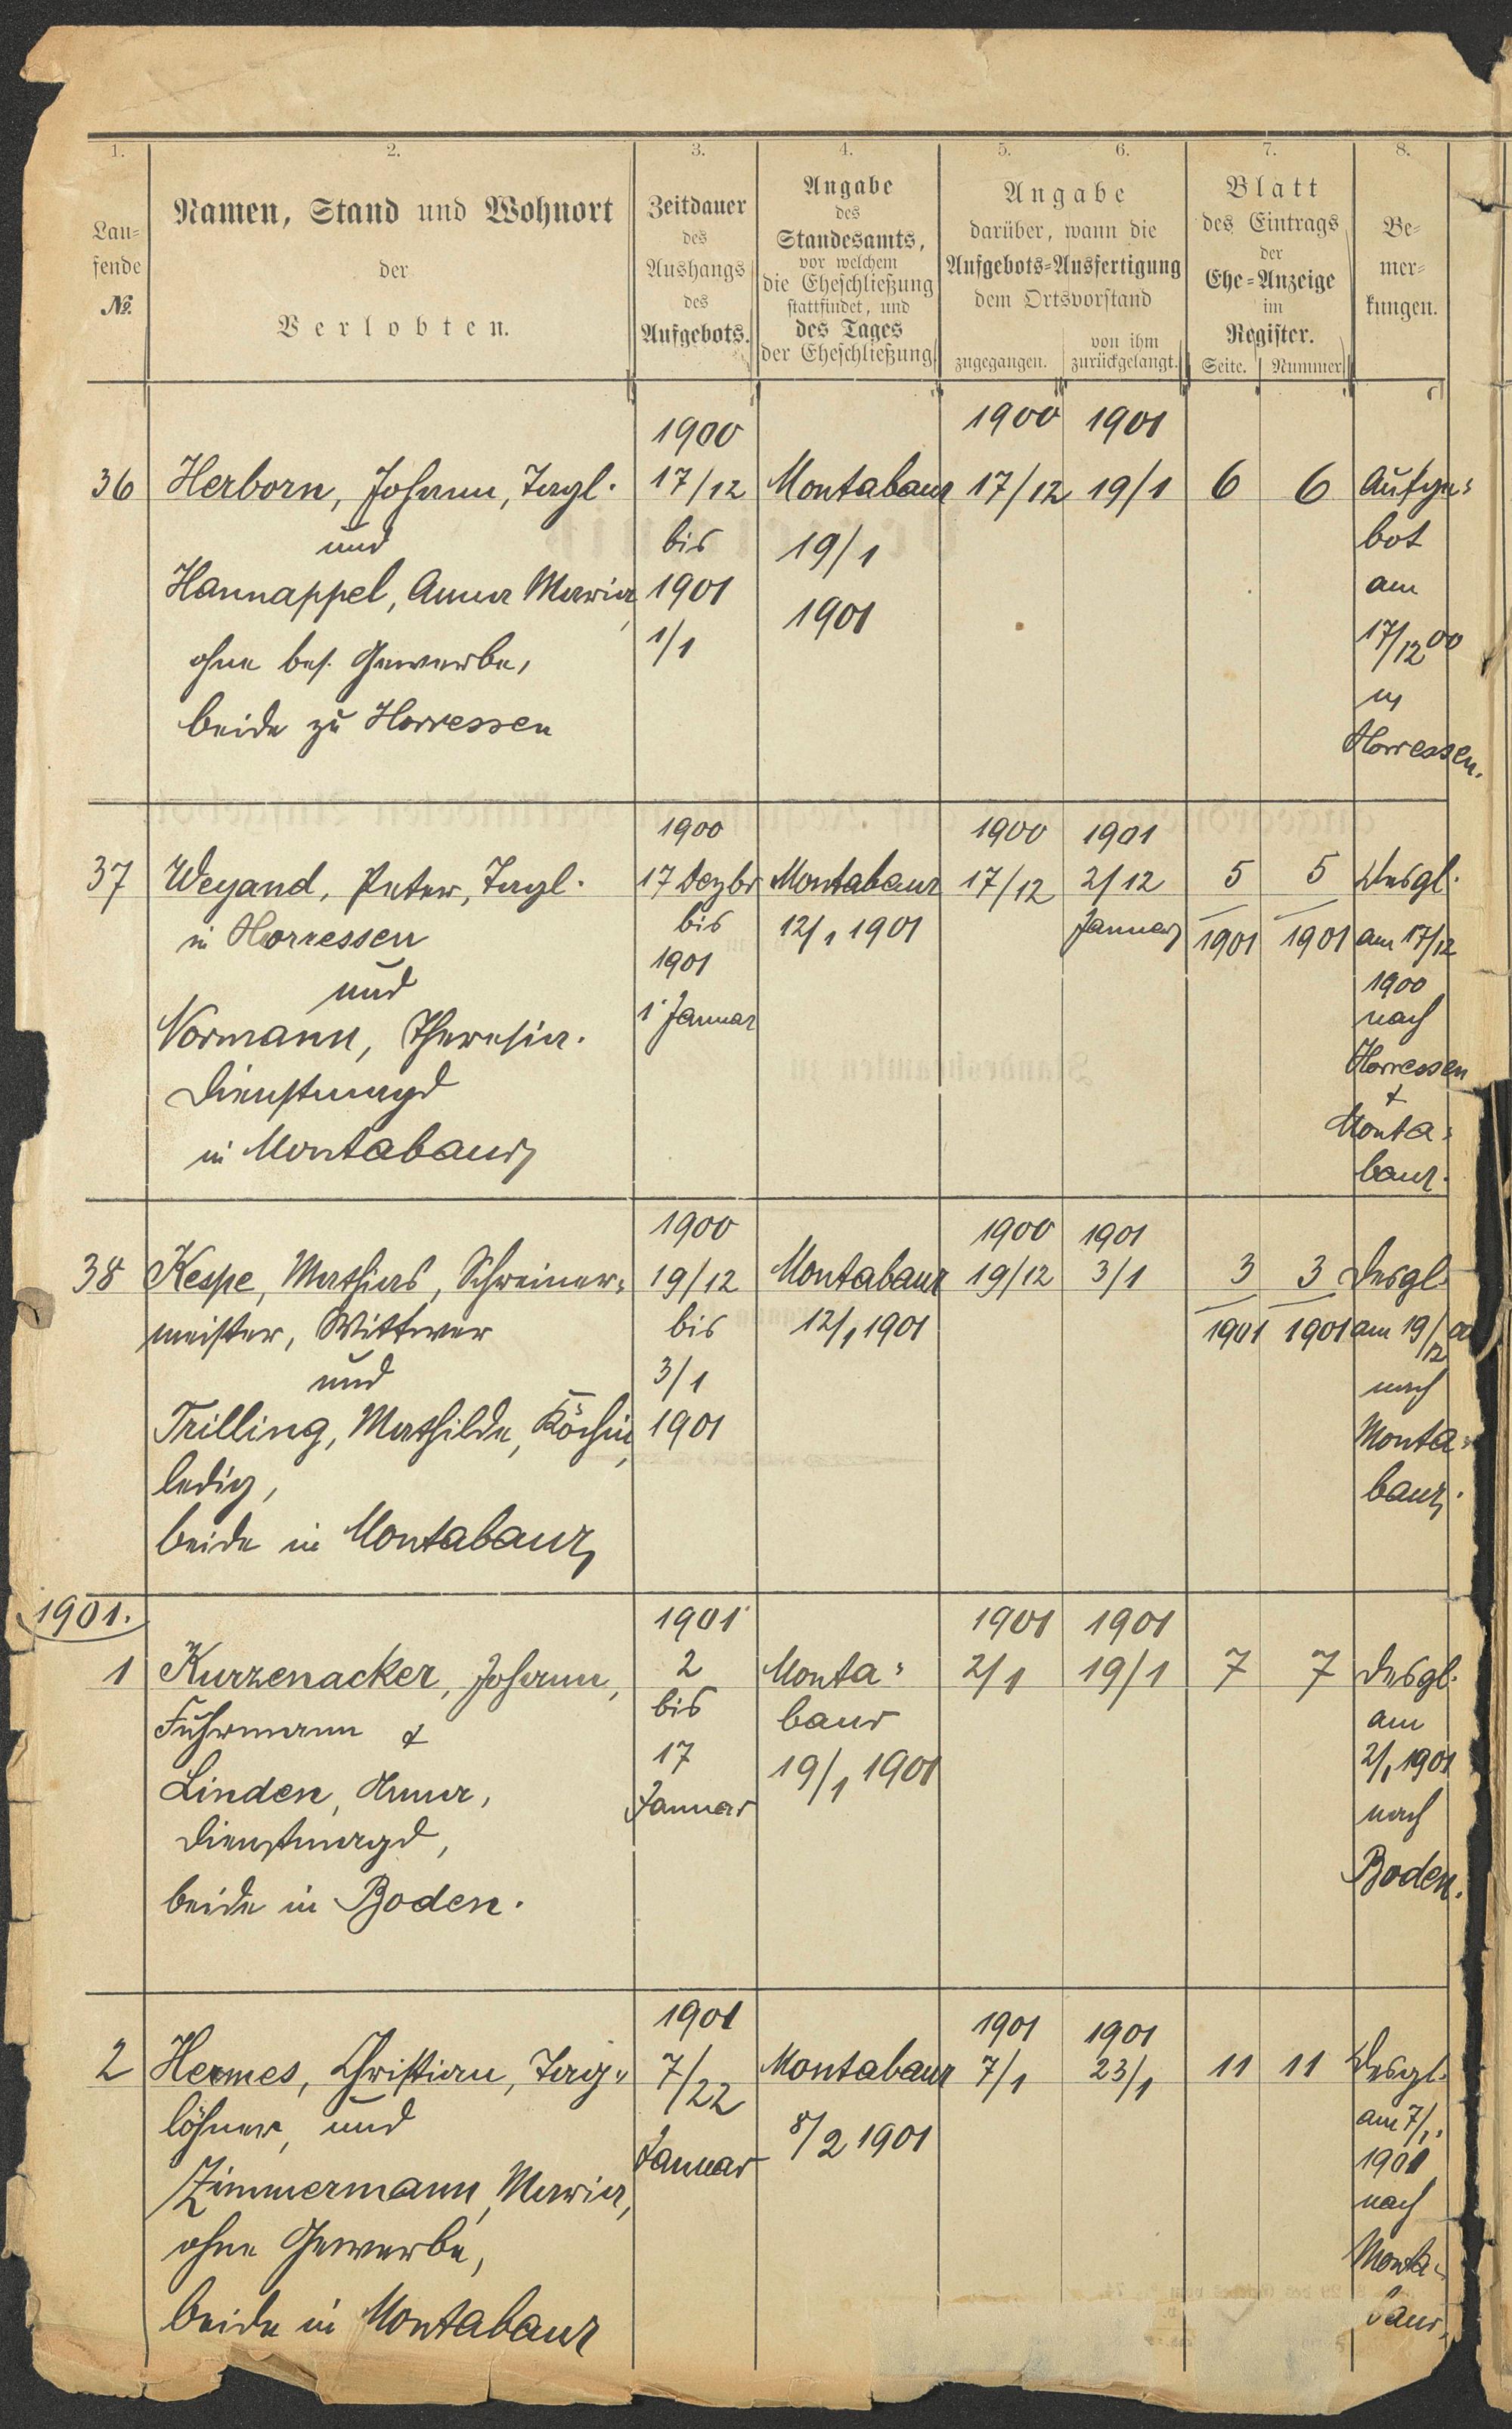 1.
Lau-
fende
No.
2.
Namen, Stand und Wohnort
der
Verlobten.
3.
Zeitdauer
des
Aushangs
des
Aufgebots.
4.
Angabe
des
Standesamts,
vor welchem
die Eheschließung
stattfindet, und
des Tages
der Eheschließung
5. 6.
Angabe
darüber, wann die
Aufgebots-Ausfertigung
dem Ortsvorstand
zugegangen.
von ihm
zurückgelangt.
7.
Blatt
des Eintrags
der
Ehe-Anzeige
im
Register.
Seite. Nummer.
8.
Be-
mer-
kungen.
36
Herborn, Johann, Tagl.
und
Hannappel, Anna Maria,
ohne bes. Gewerbe,
beide zu Horressen
1900
17/12
bis
1901
1/1
Montabaur
19/1
1901
1900
17/12
1901
19/1
6
6
Aufge-
bot
am
17/12 00
in
Horressen.
37
Weyand, Peter, Tagl.
in Horressen
und
Normann, Theresia.
Dienstmagd
in Montabaur
1900
17 Dezbr
bis
1901
1. Januar
Montabaur
12/1 1901
1900
17/12
1901
2/12
Januar
5
1901
5
1901
Desgl.
am 17/12
1900
nach
Horressen
&
Monta-
baur.
38
Kespe, Mathias, Schreiner-
meister, Wittwer
und
Trilling, Mathilde, Köchin,
ledig,
beide in Montabaur
1900
19/12
bis
3/1
1901
Montabaur
12/1 1901
1900
19/12
1901
3/1
3
1901
3
1901
Desgl.
am 19/12 00
nach
Monta-
baur.
1901.
1
Kurzenacker, Johann,
Fuhrmann &
Linden, Anna,
Dienstmagd,
beide in Boden.
1901
2
bis
17
Januar
Monta-
baur
19/1 1901
1901
2/1
1901
19/1
7
7
Desgl.
am
2/1 1901
nach
Boden.
2
Hermes, Christian, Tag-
löhner, und
Zimmermann, Maria,
ohne Gewerbe,
beide in Montabaur
1901
7/22
Januar
Montabaur
8/2 1901
1901
7/1
1901
23/1
11
11
Desgl.
am 7/1.
1901
nach
Monta-
baur.